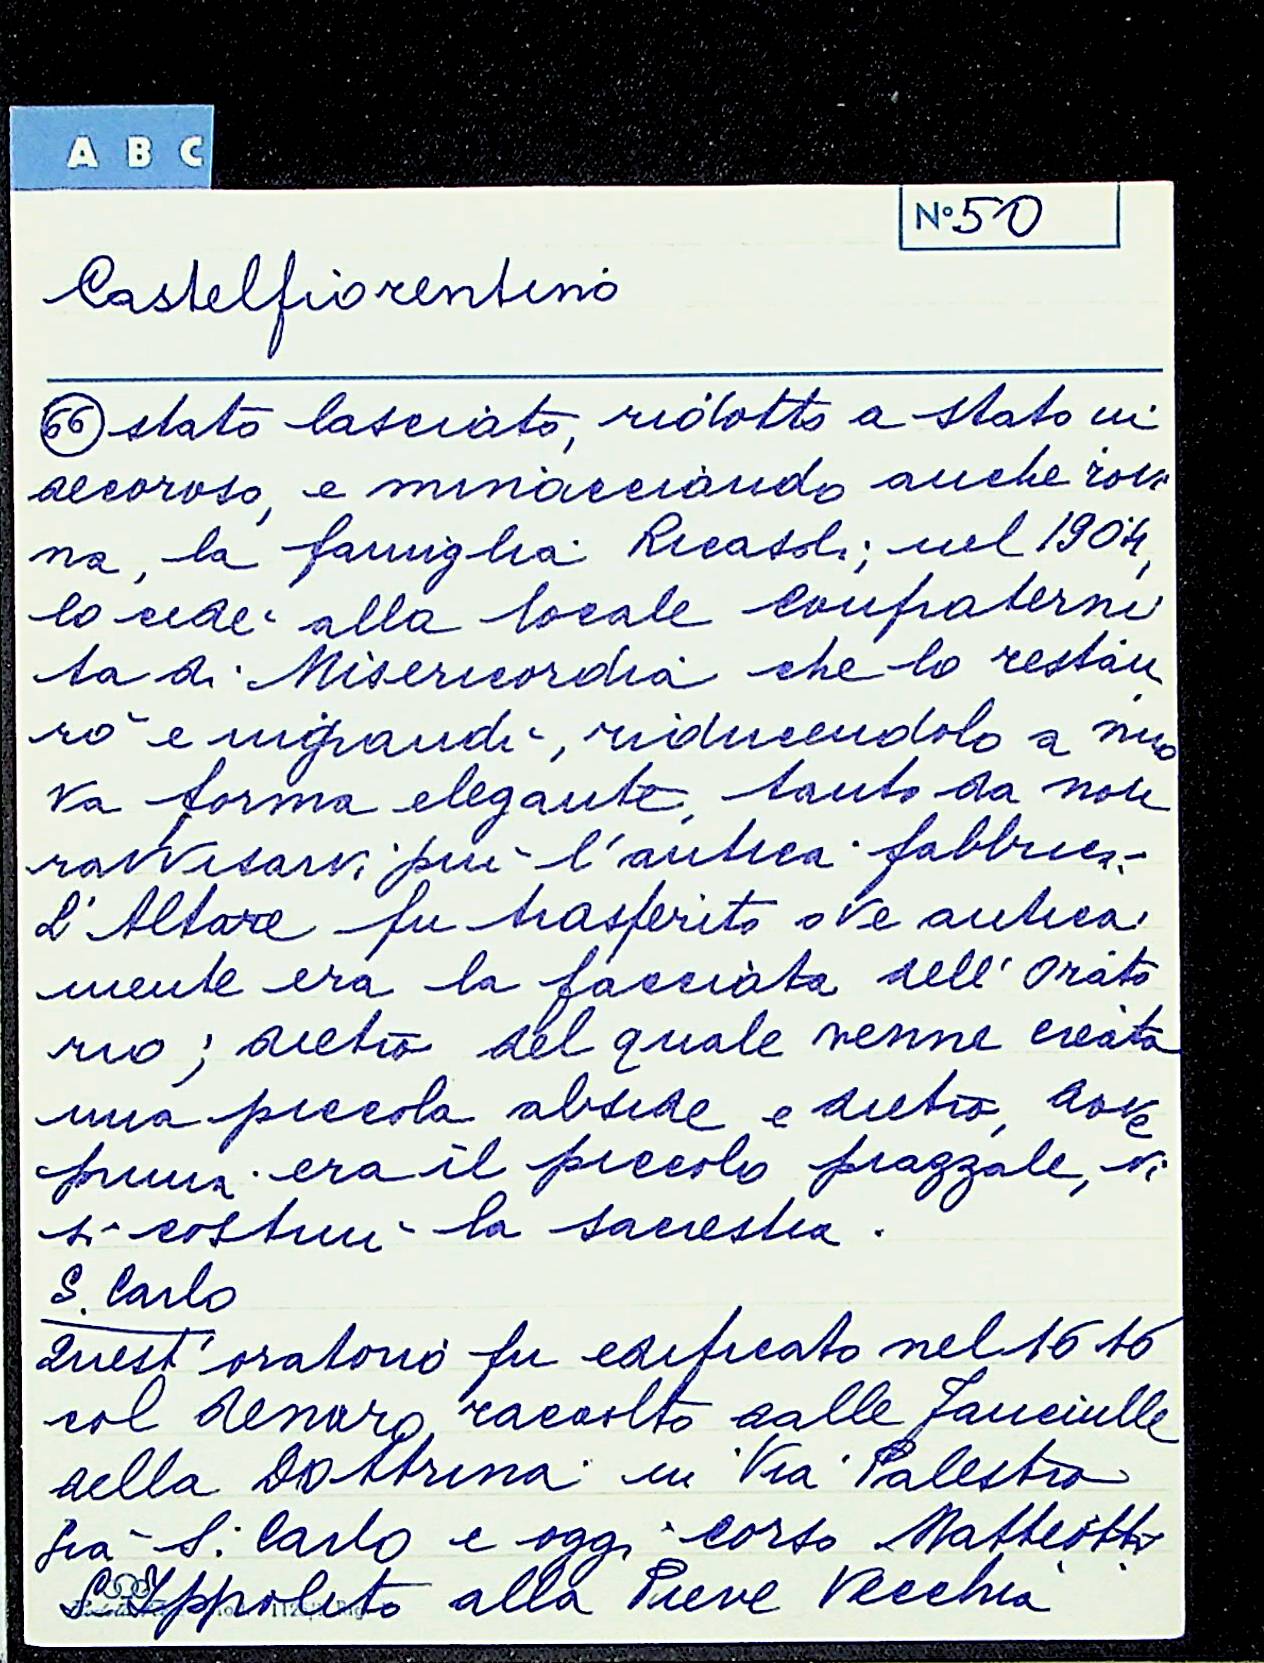 A B C
N° 50
Castelfiorentino
66 stato lasciato, ridotto a stato in
decoroso, e minacciando anche rovi
na, la famiglia Ricasoli; nel 1904,
lo cede' alla locale Confraterni
ta di Misericordia che lo restau
rò e ingrandì, riducendolo a nuo
va forma elegante, tanto da non
ravvisarvi più l'antica fabbrica.-
L'Altare fu trasferito ove antica
mente era la facciata dell'orato
rio; dietro del quale venne creata
una piccola abside e dietro, dove
prima era il piccolo piazzale, vi
si costruì la sacrestia.
S. Carlo
Quest'oratorio fu edificato nel 1616
col denaro raccolto dalle Fanciulle
della Dottrina in Via Palestro
già S. Carlo e oggi corso Matteotti
S. Ippolito alla Pieve Vecchia